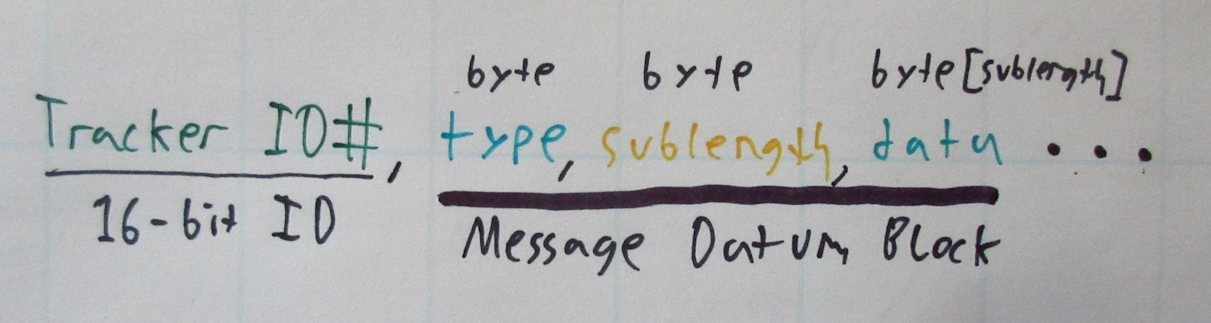 byte byte byte[sublength]
Tracker ID#, type, sublength, data ...
16-bit ID Message Datum Block